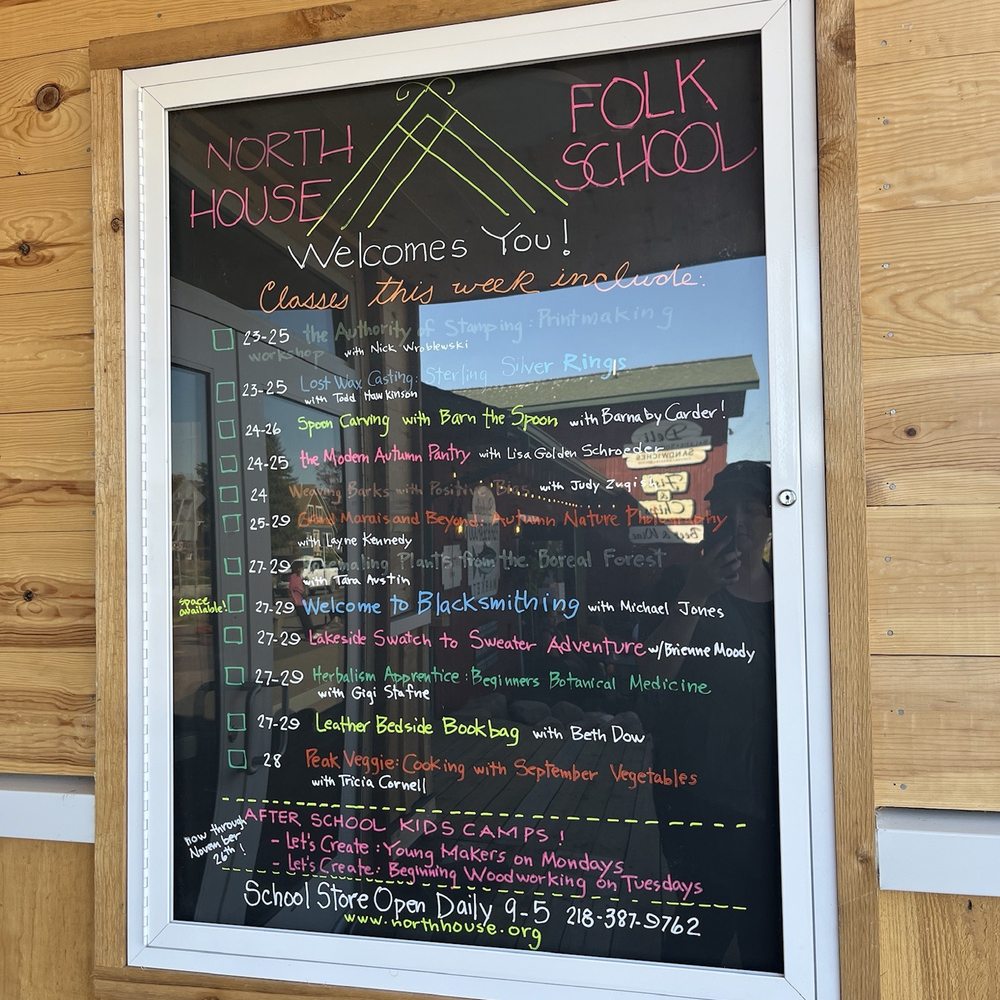 NORTH HOUSE
FOLK SCHOOL
Welcomes You!
Classes this week include:
23-25 the Authority of Stamping: Printmaking
workshop with Nick Wroblewski
23-25 Lost Wax Casting: Sterling Silver Rings
with Todd Hawkinson
24-26 Spoon Carving with Barn the Spoon with Barnaby Carder!
24-25 the Modern Autumn Pantry with Lisa Golden Schroeder
24 Weaving Barks with Positive Bias with Judy Zugish
25-29 Grand Marais and Beyond: Autumn Nature Photography
with Layne Kennedy
27-29 Plants from the Boreal Forest
with Tara Austin
space
available!
27-29 Welcome to Blacksmithing with Michael Jones
27-29 Lakeside Swatch to Sweater Adventure w/Brienne Moody
27-29 Herbalism Apprentice: Beginners Botanical Medicine
with Gigi Stafne
27-29 Leather Bedside Bookbag with Beth Dow
28 Peak Veggie: Cooking with September Vegetables
with Tricia Cornell
now through
November
26th!
AFTER SCHOOL KIDS CAMPS!
- Let's Create: Young Makers on Mondays
- Let's Create: Beginning Woodworking on Tuesdays
School Store Open Daily 9-5 218-387-9762
www.northhouse.org